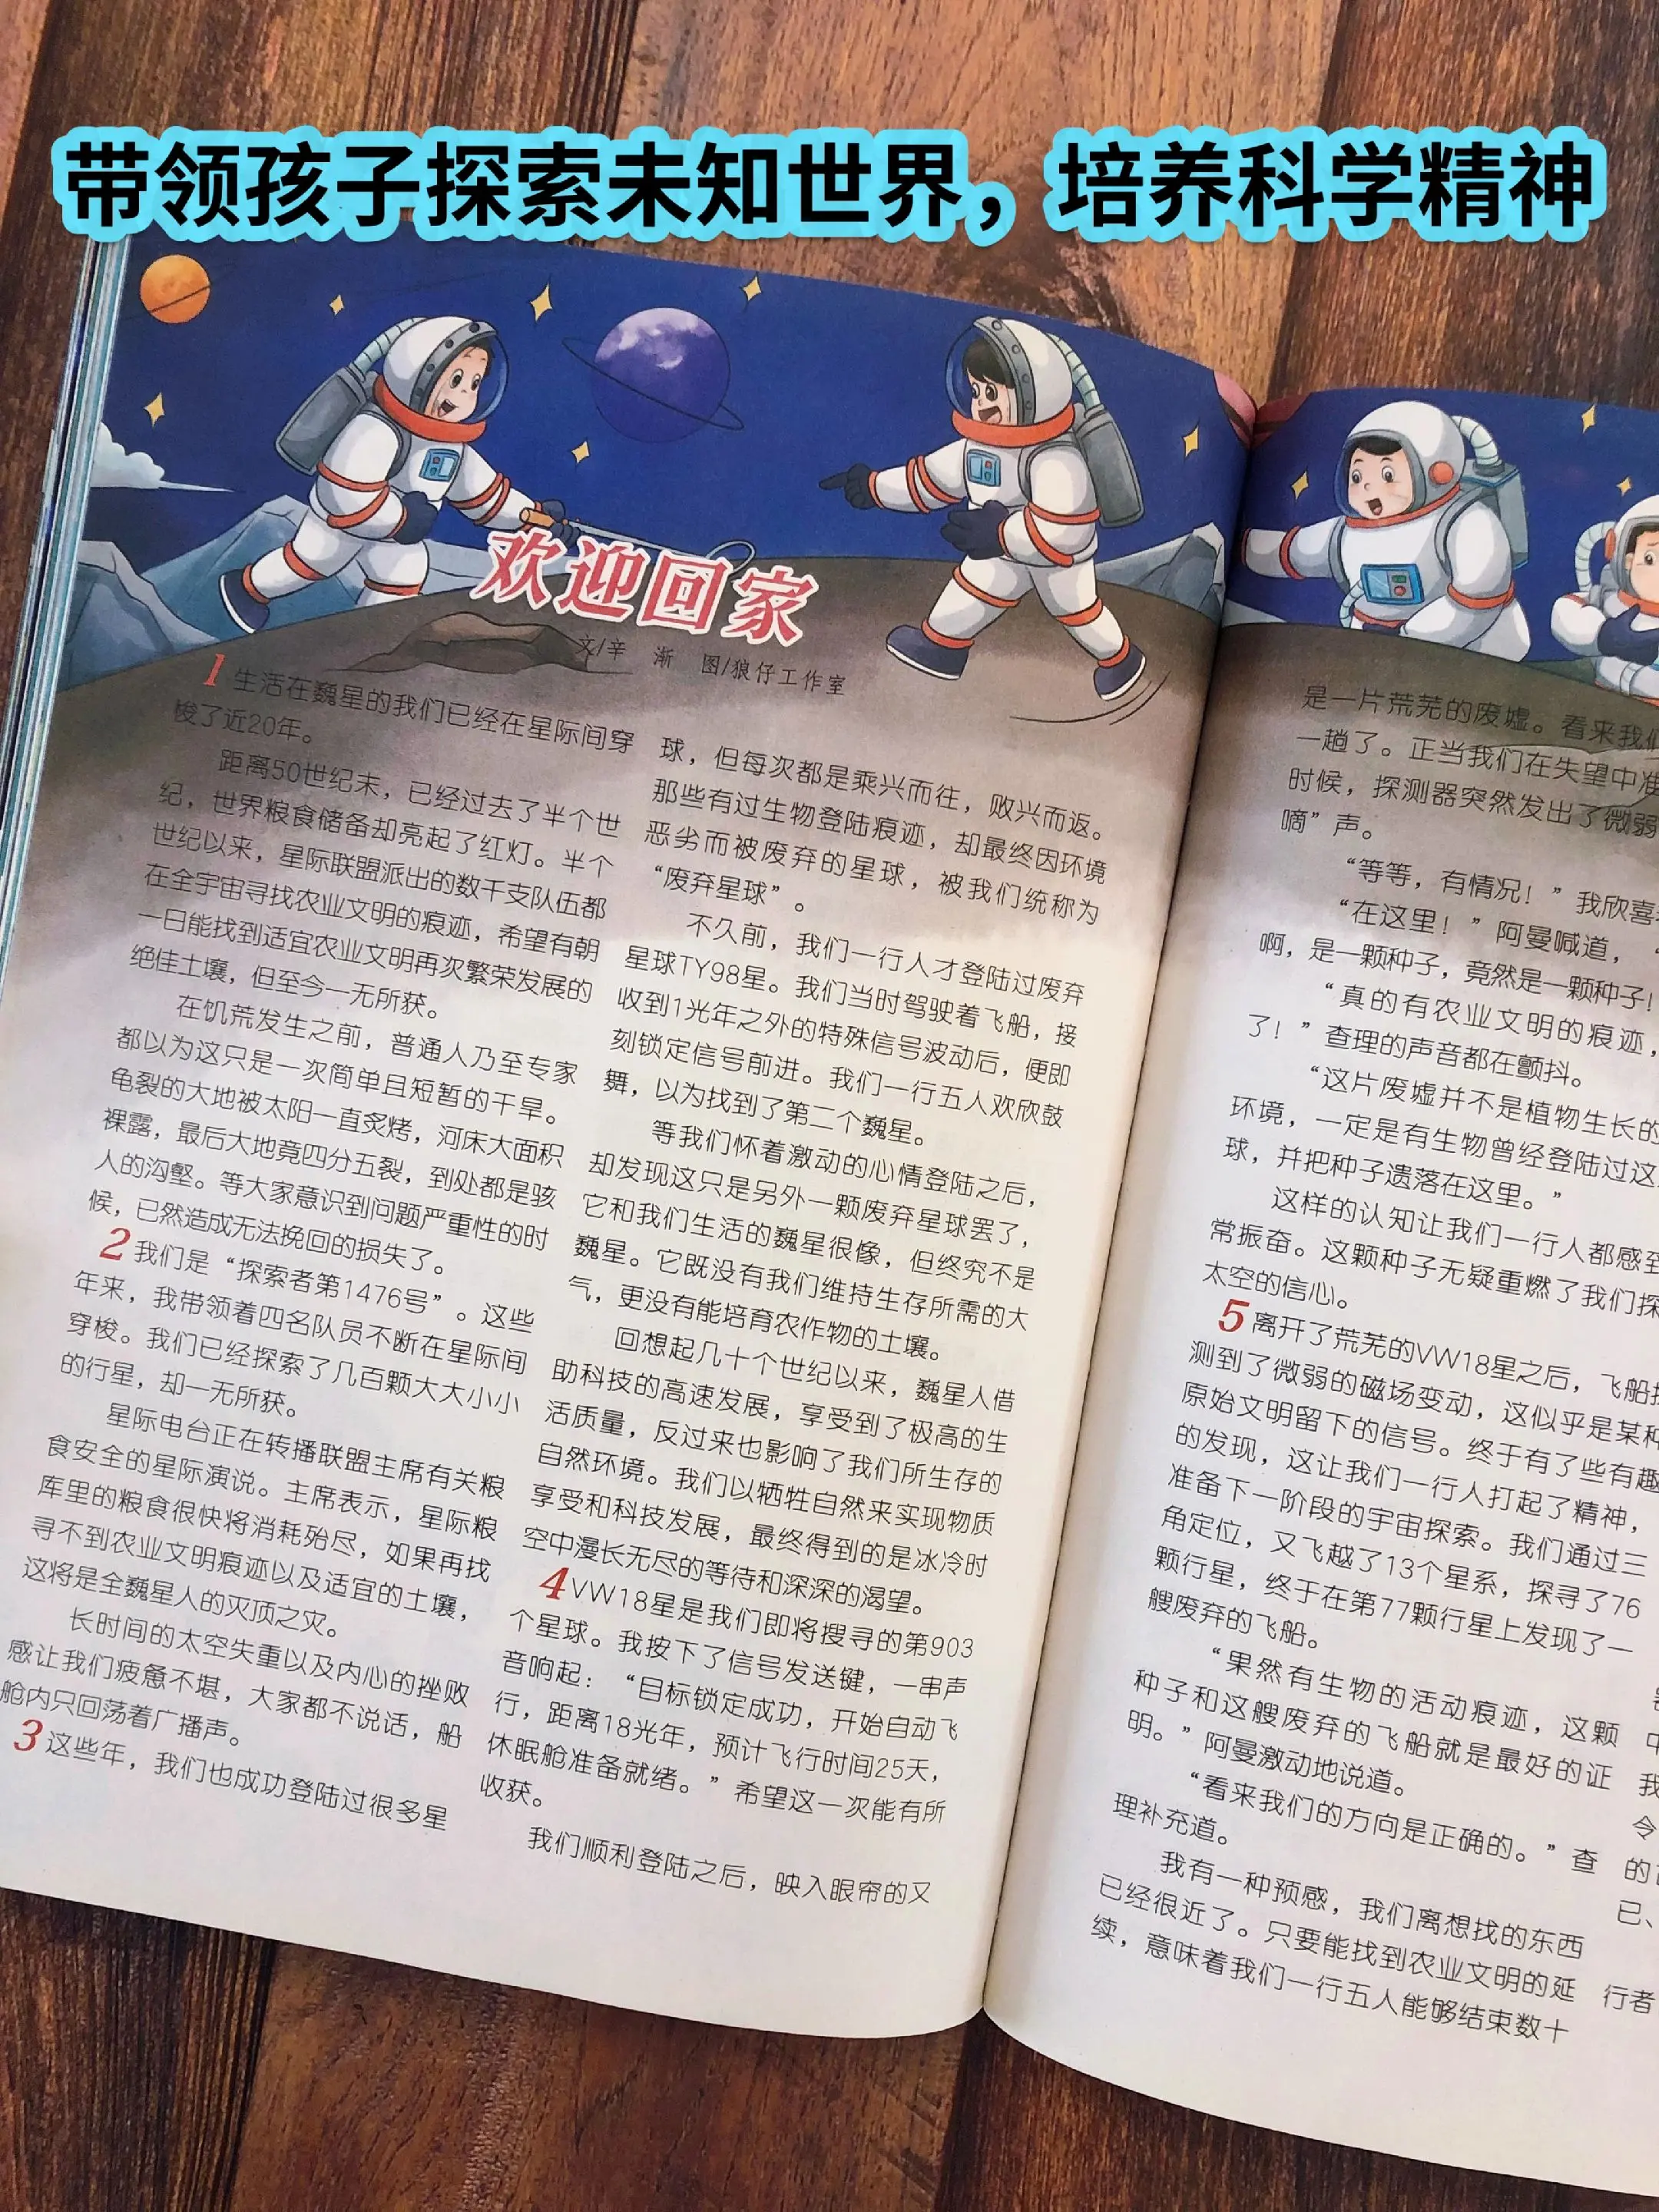 带领孩子探索未知世界，培养科学精神
欢迎回家
文/辛 渐 图/狼仔工作室
1 生活在巍星的我们已经在星际间穿
梭了近20年。
距离50世纪末，已经过去了半个世
纪，世界粮食储备却亮起了红灯。半个
世纪以来，星际联盟派出的数千支队伍都
在全宇宙寻找农业文明的痕迹，希望有朝
一日能找到适宜农业文明再次繁荣发展的
绝佳土壤，但至今一无所获。
在饥荒发生之前，普通人乃至专家
都以为这只是一次简单且短暂的干旱。
龟裂的大地被太阳一直炙烤，河床大面积
裸露，最后大地竟四分五裂，到处都是骇
人的沟壑。等大家意识到问题严重性的时
候，已然造成无法挽回的损失了。
2 我们是“探索者第1476号”。这些
年来，我带领着四名队员不断在星际间
穿梭。我们已经探索了几百颗大大小小
的行星，却一无所获。
星际电台正在转播联盟主席有关粮
食安全的星际演说。主席表示，星际粮
库里的粮食很快将消耗殆尽，如果再找
寻不到农业文明痕迹以及适宜的土壤，
这将是全巍星人的灭顶之灾。
长时间的太空失重以及内心的挫败
感让我们疲惫不堪，大家都不说话，船
舱内只回荡着广播声。
3 这些年，我们也成功登陆过很多星
球，但每次都是乘兴而往，败兴而返。
那些有过生物登陆痕迹，却最终因环境
恶劣而被废弃的星球，被我们统称为
“废弃星球”。
不久前，我们一行人才登陆过废弃
星球TY98星。我们当时驾驶着飞船，接
收到1光年之外的特殊信号波动后，便即
刻锁定信号前进。我们一行五人欢欣鼓
舞，以为找到了第二个巍星。
等我们怀着激动的心情登陆之后，
却发现这只是另外一颗废弃星球罢了，
它和我们生活的巍星很像，但终究不是
巍星。它既没有我们维持生存所需的大
气，更没有能培育农作物的土壤。
回想起几十个世纪以来，巍星人借
助科技的高速发展，享受到了极高的生
活质量，反过来也影响了我们所生存的
自然环境。我们以牺牲自然来实现物质
享受和科技发展，最终得到的是冰冷时
空中漫长无尽的等待和深深的渴望。
4 VW18星是我们即将搜寻的第903
个星球。我按下了信号发送键，一串声
音响起：“目标锁定成功，开始自动飞
行，距离18光年，预计飞行时间25天，
休眠舱准备就绪。”希望这一次能有所
收获。
我们顺利登陆之后，映入眼帘的又
是一片荒芜的废墟。看来我们
一趟了。正当我们在失望中准
时候，探测器突然发出了微弱
嘀”声。
“等等，有情况！”我欣喜
“在这里！”阿曼喊道，“
啊，是一颗种子，竟然是一颗种子！
“真的有农业文明的痕迹，
了！”查理的声音都在颤抖。
“这片废墟并不是植物生长的
环境，一定是有生物曾经登陆过这
球，并把种子遗落在这里。”
这样的认知让我们一行人都感到
常振奋。这颗种子无疑重燃了我们探
太空的信心。
5 离开了荒芜的VW18星之后，飞船探
测到了微弱的磁场变动，这似乎是某种
原始文明留下的信号。终于有了些有趣
的发现，这让我们一行人打起了精神，
准备下一阶段的宇宙探索。我们通过三
角定位，又飞越了13个星系，探寻了76
颗行星，终于在第77颗行星上发现了一
艘废弃的飞船。
“果然有生物的活动痕迹，这颗
种子和这艘废弃的飞船就是最好的证
明。”阿曼激动地说道。
“看来我们的方向是正确的。”查
理补充道。
我有一种预感，我们离想找的东西
已经很近了。只要能找到农业文明的延
续，意味着我们一行五人能够结束数十
中
我
令
的
已、
行者